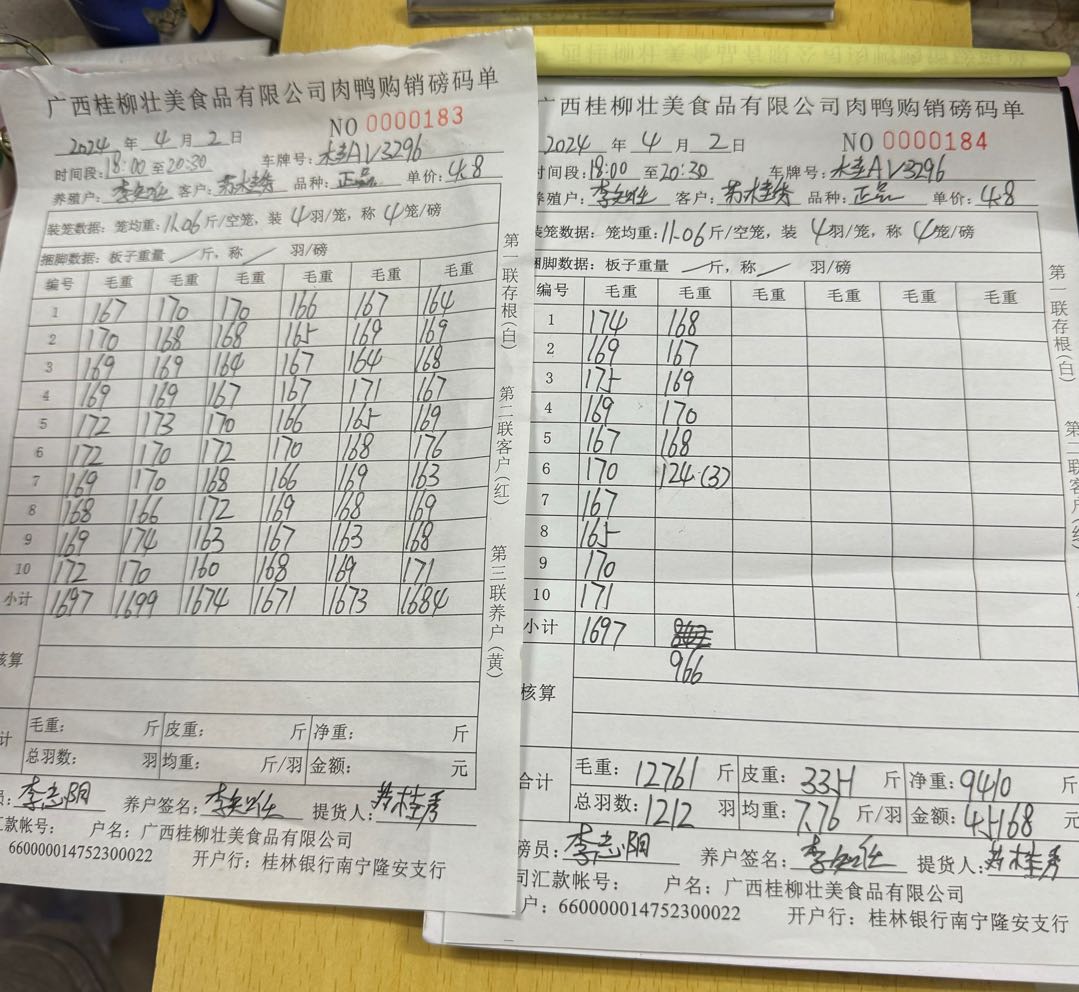 广西桂柳壮美食品有限公司肉鸭购销磅码单
2024 年 4 月 2 日 NO 0000183
时间段: 18:00 至 20:30 车牌号: 桂AV3296
养殖户: 客户: 品种: 正品 单价: 4.8
装笼数据: 笼均重: 11.06 斤/空笼, 装 4 羽/笼, 称 4 笼/磅
捆脚数据: 板子重量 / 斤, 称 / 羽/磅
编号 毛重 毛重 毛重 毛重 毛重 毛重
1 167 170 170 166 167 164
2 170 168 168 165 169 169
3 169 169 164 167 164 168
4 169 169 167 167 171 167
5 172 173 170 166 165 169
6 172 170 172 170 168 176
7 169 170 168 166 169 163
8 168 166 172 169 168 169
9 169 174 163 167 163 168
10 172 170 160 168 169 171
小计 1697 1699 1674 1671 1673 1684
核算
计
毛重: 斤 皮重: 斤 净重: 斤
总羽数: 羽 均重: 斤/羽 金额: 元
员: 李志阳 养户签名: 提货人:
汇款帐号: 户名: 广西桂柳壮美食品有限公司
660000014752300022 开户行: 桂林银行南宁隆安支行
第一联存根(白) 第二联客户(红) 第三联养户(黄)
广西桂柳壮美食品有限公司肉鸭购销磅码单
2024 年 4 月 2 日 NO 0000184
时间段: 18:00 至 20:30 车牌号: 桂AV3296
养殖户: 客户: 品种: 正品 单价: 4.8
装笼数据: 笼均重: 11.06 斤/空笼, 装 4 羽/笼, 称 4 笼/磅
捆脚数据: 板子重量 / 斤, 称 / 羽/磅
编号 毛重 毛重 毛重 毛重 毛重 毛重
1 174 168
2 169 167
3 175 169
4 169 170
5 167 168
6 170 124.(3)
7 167
8 165
9 170
10 171
小计 1697
966
核算
合计
毛重: 12761 斤 皮重: 3351 斤 净重: 9410 斤
总羽数: 1212 羽 均重: 7.76 斤/羽 金额: 45168 元
磅员: 李志阳 养户签名: 提货人:
司汇款帐号: 户名: 广西桂柳壮美食品有限公司
户: 660000014752300022 开户行: 桂林银行南宁隆安支行
第一联存根(白) 第二联客户(红)